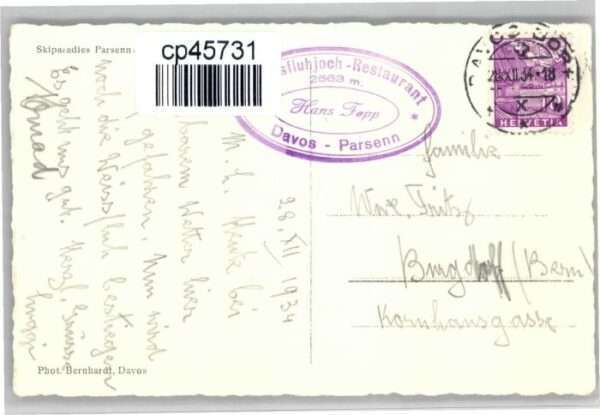 Skiparadies Parsenn
cp45731
sfluhjoch-Restaurant
2663 m.
Hans Fopp
Davos - Parsenn
DAVOS DORF
28.XII.34-18
HELVETIA
28. XII 1934
M. L. Heute bei
Wetter hier
gefahren. Nun wird
noch die Weissfluh bestiegen
Es geht uns gut. Herzl. Grüsse
Familie
Fritz
Burgdorf (Bern)
Kornhausgasse
Phot. Bernhardt, Davos